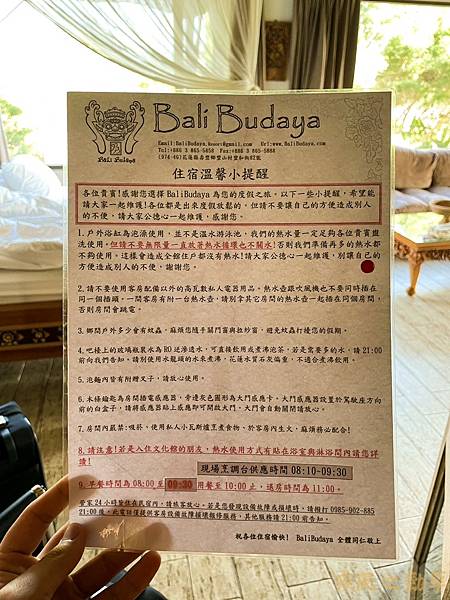 Bali Budaya
Bali Budaya
Tel:+886 3 865-5658 Fax:+886 3 865-5888
住宿溫馨小提醒
各位貴賓!感謝您選擇BaliBudaya 為您的度假之旅。以下一些小提醒,希望能
請大家一起維護!各位都是出來度假放鬆的,但請不要讓自己的方便造成別人
的不便,請大家公德心一起維護,感謝您。
1.戶外浴缸為泡湯使用,並不是溫水游泳池,我們的熱水量一定足夠各位貴賓盥
洗使用。但請不要無限量一直放著熱水循環也不關水!否則我們準備再多的熱水都
不夠使用。這樣會造成全館住戶都沒有熱水!請大家公德心一起維護,別讓自己的
方便造成別人的不便,謝謝您。
2.請不要使用客房配備以外的高瓦數私人電器用品。熱水壺跟吹風機也不要同時插在
同一個插頭,一間客房有附一台熱水壺,請別拿其它房間的熱水壺一起插在同個房間,
否則房間會跳電。
3.鄉間戶外多少會有蚊蟲,麻煩您隨手關門窗與拉紗窗,避免蚊蟲打擾您的假期。
4.吧檯上的玻璃瓶裝水為RO逆滲透水,可直接飲用或煮沸泡茶,若是需要多的水,請21:00
前向我們告知。請別使用水龍頭的水來煮沸,花蓮水質石灰偏重,不適合煮沸飲用。
5.泡麵內皆有附贈叉子,請放心使用。
6.木條鑰匙為房間插電感應器,旁邊灰色圓形為大門感應卡。大門感應器設置於駕駛座方向
前的白盒子,請將感應器貼上感應即可開啟大門。大門會自動關閉請放心。
7.房間內嚴禁:吸菸。使用私人小瓦斯爐烹煮食物。於客房內生火,麻煩務必配合!
8.請注意!若是入住文化館的朋友,熱水使用方式有貼在浴室與淋浴間內請您詳
讀!
現場烹調台供應時間 08:10-09:30
9.早餐時間為08:00至09:30用餐至10:00止,退房時間為11:00。
管家24小時皆住在民宿內,請旅客放心。若是您發現設備故障或損壞時,請撥打0985-902-885
21:00後,此電話僅提供客房設備故障損壞報修服務,其他服務請21:00前告知。
祝各位住宿愉快! BaliBudaya 全體同仁敬上